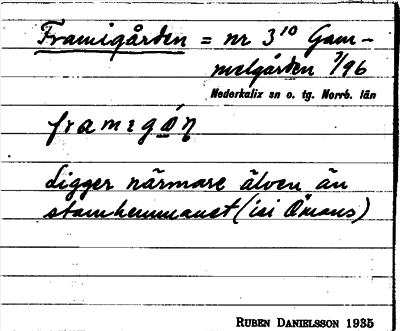 Framigården = nr 3¹⁰ Gam-
melgården 7/96
Nederkalix sn o. tg. Norrb. län
Ligger närmare älven än
stamhemmanet (
RUBEN DANIELSSON 1935